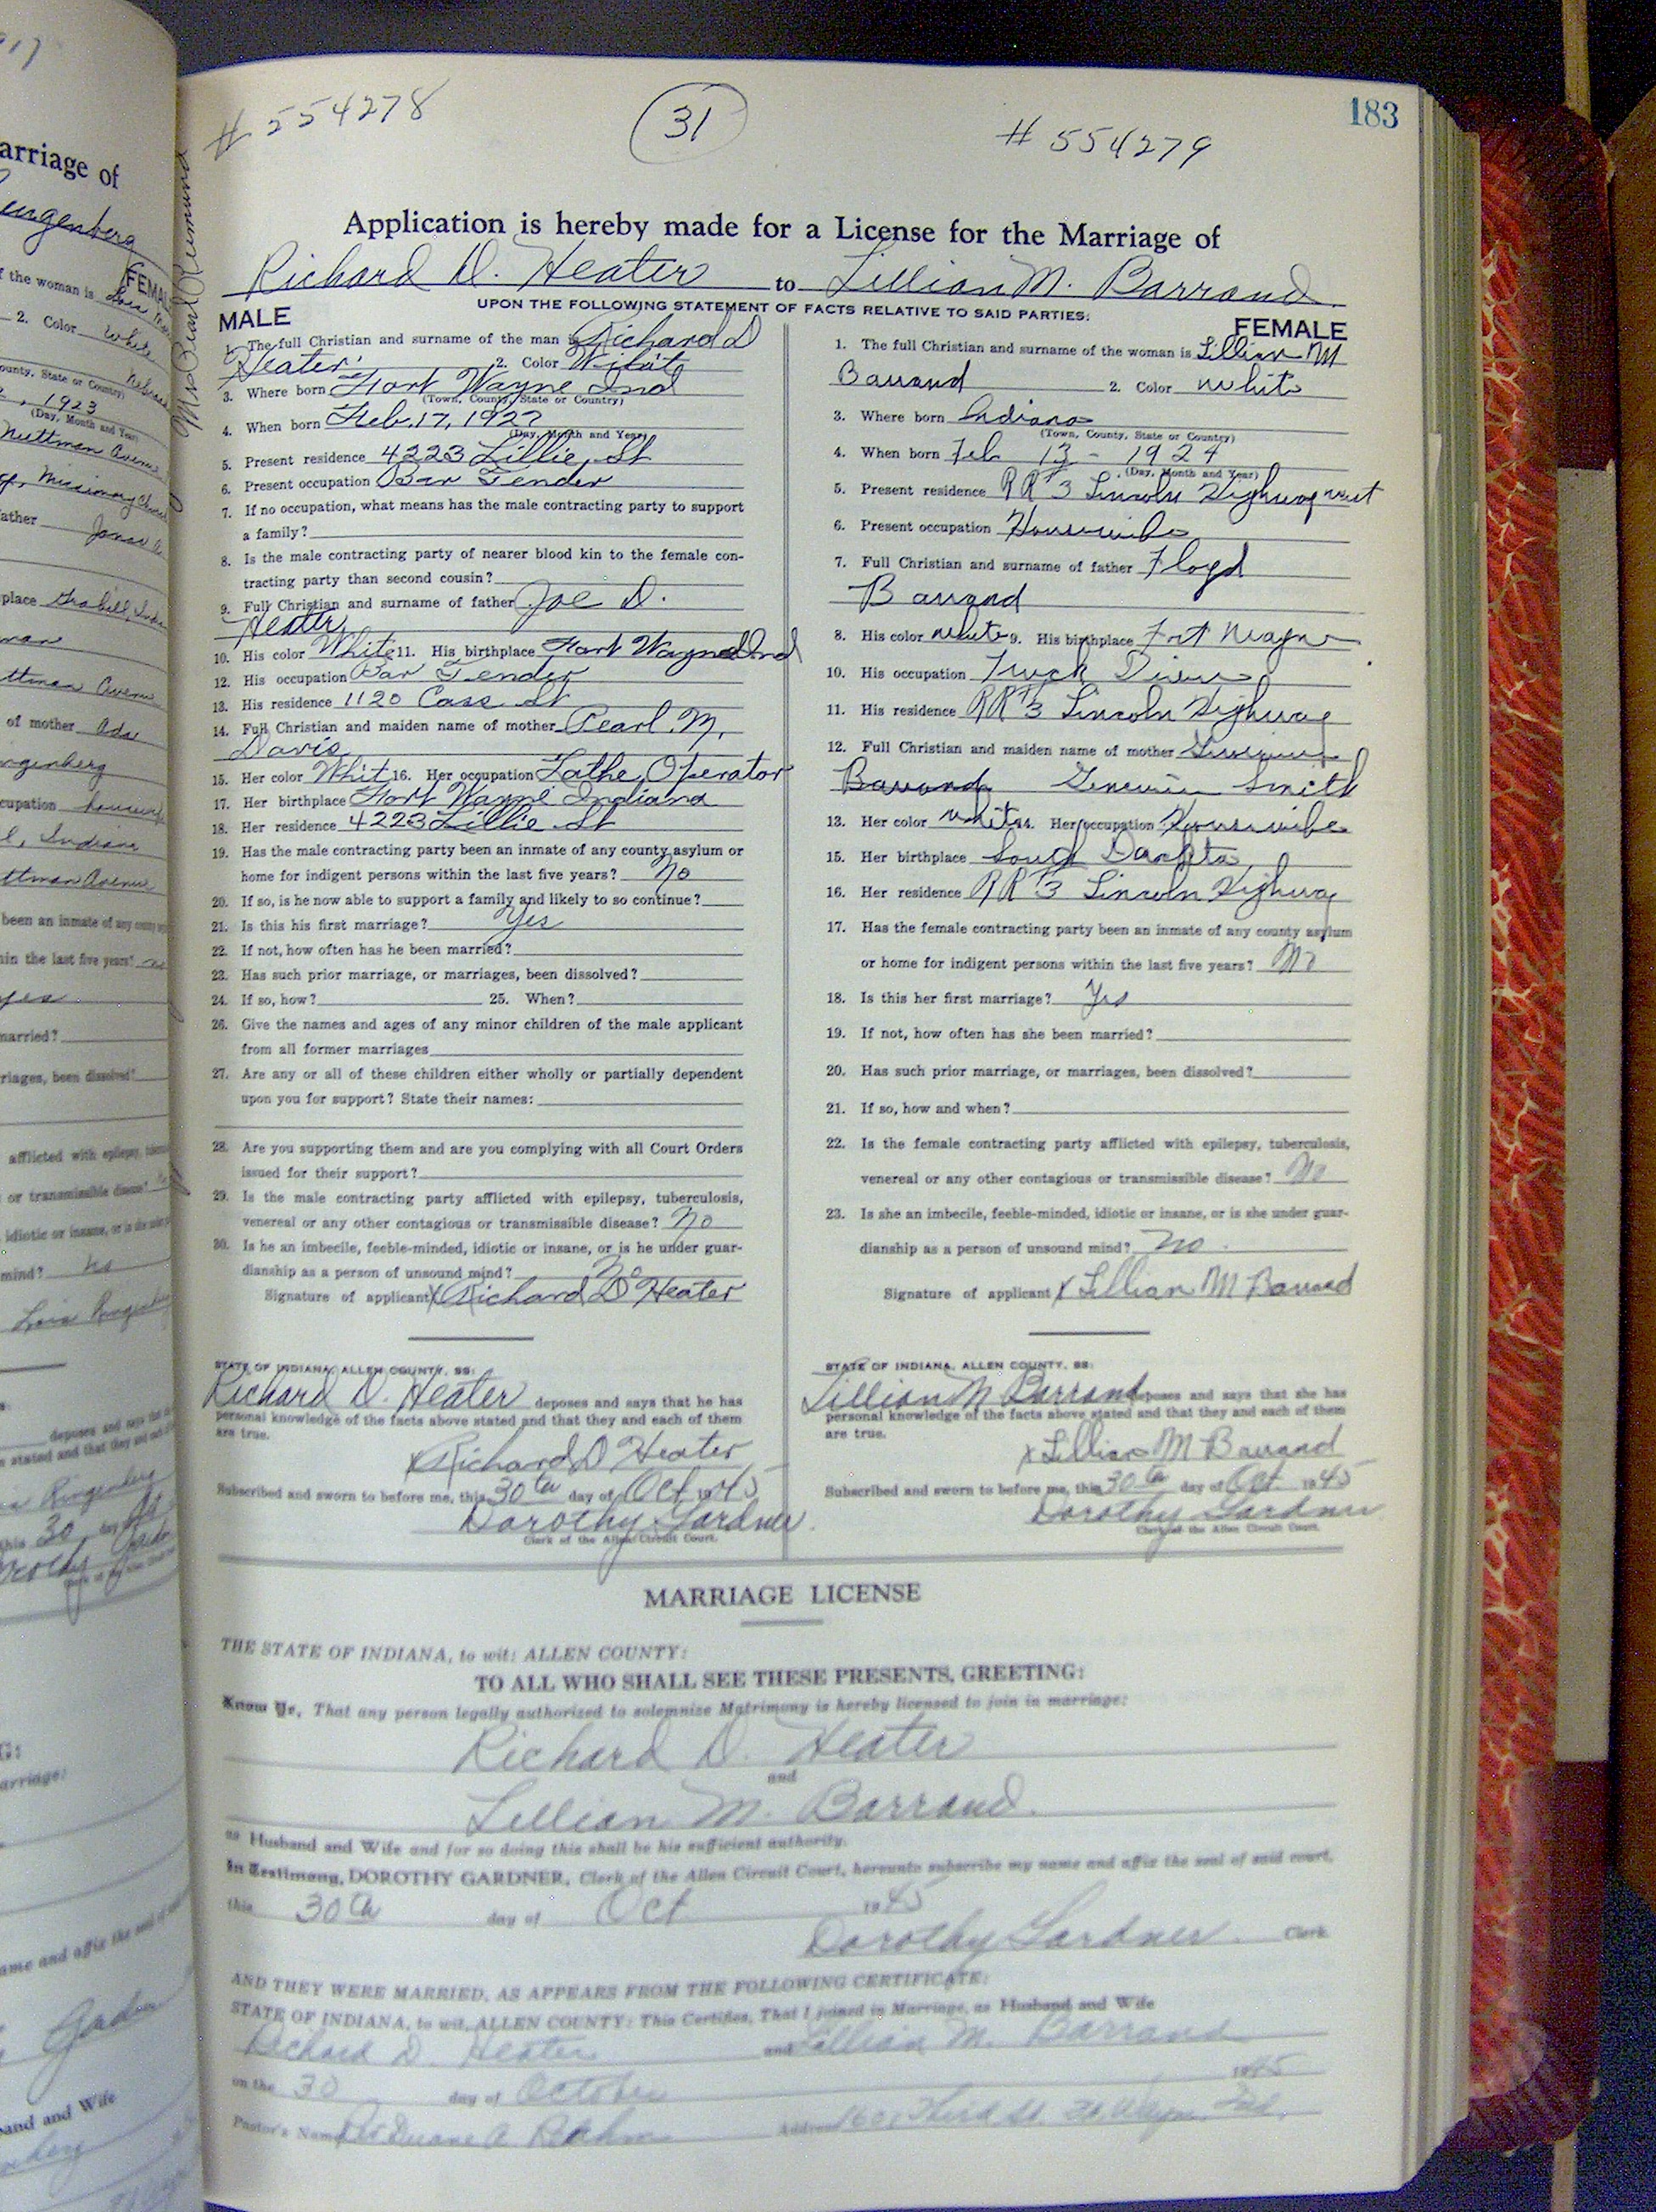 # 554278
31
# 554279
183
Application is hereby made for a License for the Marriage of
Richard D. Heater to Lillian M. Barrand
UPON THE FOLLOWING STATEMENT OF FACTS RELATIVE TO SAID PARTIES:
MALE
1. The full Christian and surname of the man is Richard D
Heater 2. Color White
3. Where born Fort Wayne Ind
(Town, County, State or Country)
4. When born Feb. 17, 1922
(Day, Month and Year)
5. Present residence 4223 Lillie St
6. Present occupation Bar Tender
7. If no occupation, what means has the male contracting party to support
a family?
8. Is the male contracting party of nearer blood kin to the female con-
tracting party than second cousin?
9. Full Christian and surname of father Joe D.
Heater
10. His color White 11. His birthplace Fort Wayne Ind
12. His occupation Bar Tender
13. His residence 1120 Cass St
14. Full Christian and maiden name of mother Pearl M.
Davis
15. Her color Whit 16. Her occupation Lathe Operator
17. Her birthplace Fort Wayne Indiana
18. Her residence 4223 Lillie St
19. Has the male contracting party been an inmate of any county asylum or
home for indigent persons within the last five years? No
20. If so, is he now able to support a family and likely to so continue?
21. Is this his first marriage? Yes
22. If not, how often has he been married?
23. Has such prior marriage, or marriages, been dissolved?
24. If so, how? 25. When?
26. Give the names and ages of any minor children of the male applicant
from all former marriages
27. Are any or all of these children either wholly or partially dependent
upon you for support? State their names:
28. Are you supporting them and are you complying with all Court Orders
issued for their support?
29. Is the male contracting party afflicted with epilepsy, tuberculosis,
venereal or any other contagious or transmissible disease? No
30. Is he an imbecile, feeble-minded, idiotic or insane, or is he under guar-
dianship as a person of unsound mind? No
Signature of applicant X Richard D Heater
STATE OF INDIANA, ALLEN COUNTY, SS:
Richard D. Heater deposes and says that he has
personal knowledge of the facts above stated and that they and each of them
are true.
X Richard D Heater
Subscribed and sworn to before me, this 30th day of Oct 1945
Dorothy Gardner
Clerk of the Allen Circuit Court.
FEMALE
1. The full Christian and surname of the woman is Lillian M
Barrand 2. Color White
3. Where born Indiana
(Town, County, State or Country)
4. When born Feb 13 - 1924
(Day, Month and Year)
5. Present residence RR #3 Lincoln Highway west
6. Present occupation Housewife
7. Full Christian and surname of father Floyd
Barrand
8. His color white 9. His birthplace Fort Wayne
10. His occupation Truck Driver
11. His residence RR #3 Lincoln Highway
12. Full Christian and maiden name of mother
Barrand Genevieve Smith
13. Her color white 14. Her occupation Housewife
15. Her birthplace South Dakota
16. Her residence RR #3 Lincoln Highway
17. Has the female contracting party been an inmate of any county asylum
or home for indigent persons within the last five years? No
18. Is this her first marriage? Yes
19. If not, how often has she been married?
20. Has such prior marriage, or marriages, been dissolved?
21. If so, how and when?
22. Is the female contracting party afflicted with epilepsy, tuberculosis,
venereal or any other contagious or transmissible disease? No
23. Is she an imbecile, feeble-minded, idiotic or insane, or is she under guar-
dianship as a person of unsound mind? No
Signature of applicant X Lillian M Barrand
STATE OF INDIANA, ALLEN COUNTY, SS:
Lillian M Barrand deposes and says that she has
personal knowledge of the facts above stated and that they and each of them
are true.
X Lillian M Barrand
Subscribed and sworn to before me, this 30th day of Oct. 1945
Dorothy Gardner
Clerk of the Allen Circuit Court.
MARRIAGE LICENSE
THE STATE OF INDIANA, to wit: ALLEN COUNTY:
TO ALL WHO SHALL SEE THESE PRESENTS, GREETING:
Know Ye, That any person legally authorized to solemnize Matrimony is hereby licensed to join in marriage:
Richard D. Heater
and
Lillian M. Barrand.
as Husband and Wife and for so doing this shall be his sufficient authority.
In Testimony, DOROTHY GARDNER, Clerk of the Allen Circuit Court, hereunto subscribe my name and affix the seal of said court,
this 30th day of Oct 1945
Dorothy Gardner Clerk
AND THEY WERE MARRIED, AS APPEARS FROM THE FOLLOWING CERTIFICATE:
STATE OF INDIANA, to wit, ALLEN COUNTY: This Certifies, That I joined in Marriage, as Husband and Wife
Richard D. Heater and Lillian M. Barrand
on the 30 day of October 1945
Pastor's Name Duane A. Address Third St. Ft Wayne Ind.